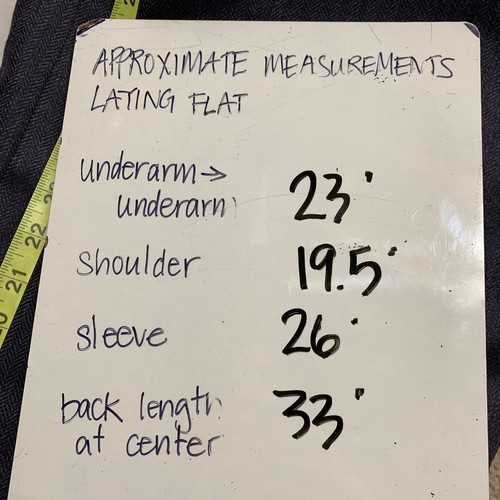 APPROXIMATE MEASUREMENTS
LATING FLAT
underarm →
underarm 23"
shoulder 19.5"
sleeve 26"
back length
at center 33"
20 21 22